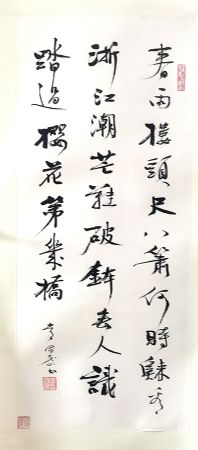 春雨楼頭尺八簫何時歸看
浙江潮芒鞋破鉢無人識
踏過櫻花第幾橋